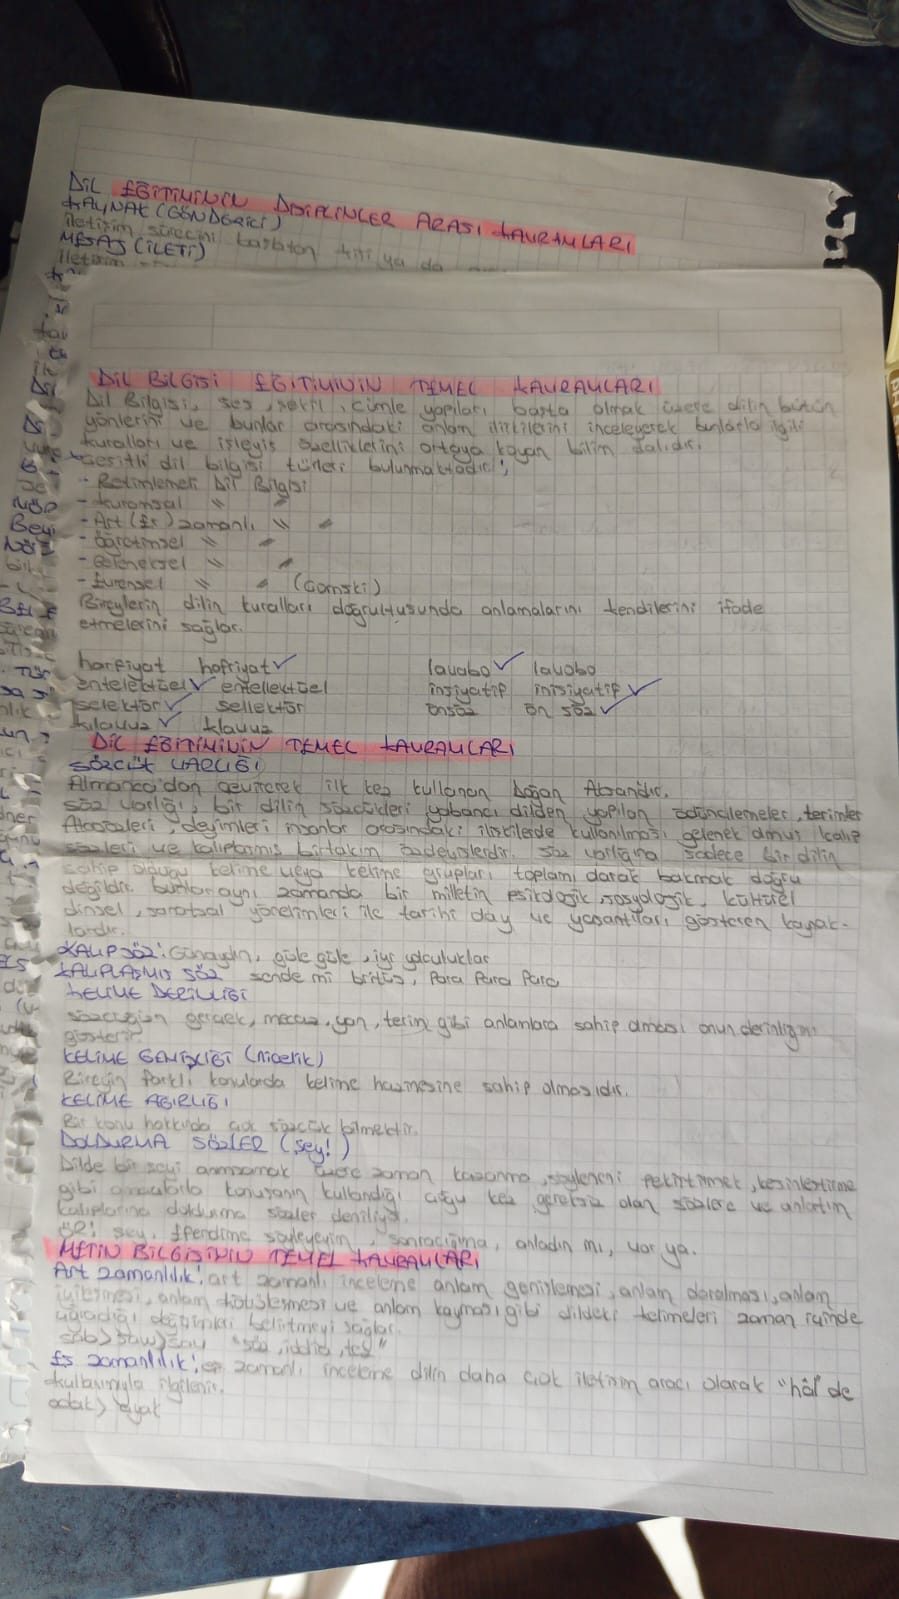 DİL EĞİTİMİNİN DİSİPLİNLER ARASI KAVRAMLARI
KAYNAK (GÖNDERİCİ)
iletişim sürecini başlatan kişi ya da
MESAJ (İLETİ)
İletişim
DİL BİLGİSİ EĞİTİMİNİN TEMEL KAVRAMLARI
Dil Bilgisi, ses, şekil, cümle yapıları başta olmak üzere dilin bütün
yönlerini ve bunlar arasındaki anlam ilişkilerini inceleyerek bunlarla ilgili
kuralları ve işleyiş özelliklerini ortaya koyan bilim dalıdır.
Çeşitli dil bilgisi türleri bulunmaktadır;
- Betimlemeli Dil Bilgisi
- kuramsal " "
- Art (Eş) zamanlı " "
- Öğretimsel " "
- Geleneksel " "
- Evrensel " " (Comski)
Bireylerin dilin kuralları doğrultusunda anlamalarını kendilerini ifade
etmelerini sağlar.
harfiyat hafriyat ✓ lavabo ✓ lavobo
entelektüel ✓ entellektüel insiyatif inisiyatif ✓
selektör ✓ sellektör önsöz ön söz ✓
kılavuz ✓ klavuz
DİL EĞİTİMİNİN TEMEL KAVRAMLARI
SÖZCÜK VARLIĞI
Almanca'dan çevirerek ilk kez kullanan Doğan Aksandır.
Söz varlığı, bir dilin sözcükleri yabancı dilden yapılan ödünçlemeler, terimler
Atasözleri, deyimleri insanlar arasındaki ilişkilerde kullanılması gelenek olmuş kalıp
sözleri ve kalıplaşmış birtakım özdeyişlerdir. Söz varlığına sadece bir dilin
sahip olduğu kelime veya kelime grupları toplamı olarak bakmak doğru
değildir. bunlar aynı zamanda bir milletin psikolojik, sosyolojik, kültürel
dinsel, sanatsal yönelimleri ile tarihi olay ve yaşantıları gösteren kaynak-
lardır.
KALIP SÖZ: Günaydın, güle güle, iyi yolculuklar
KALIPLAŞMIŞ SÖZ sende mi brütüs, Para Para Para
KELİME DERİNLİĞİ
sözcüğün gerçek, mecaz, yan, terim gibi anlamlara sahip olması onun derinliğini
gösterir.
KELİME GENİŞLİĞİ (nicelik)
Bireyin farklı konularda kelime hazinesine sahip olmasıdır.
KELİME AĞIRLIĞI
Bir konu hakkında çok sözcük bilmektir.
DOLDURMA SÖZLER (şey!)
Dilde bir şeyi anımsamak üzere zaman kazanma, söyleneni pekiştirmek, kesinleştirme
gibi amaçlarla konuşanın kullandığı çoğu kez gereksiz olan sözlere ve anlatım
kalıplarına doldurma sözler deniliyor.
ÖR: şey, Efendime söyleyeyim, sonracığıma, anladın mı, var ya.
METİN BİLGİSİNİN TEMEL KAVRAMLARI
Art zamanlılık: art zamanlı inceleme anlam genişlemesi, anlam daralması, anlam
iyileşmesi, anlam kötüleşmesi ve anlam kayması gibi dildeki kelimeleri zaman içinde
uğradığı değişimleri belirtmeyi sağlar.
sab>saw>sav "söz, iddia, tez"
Eş zamanlılık: eş zamanlı inceleme dilin daha çok iletişim aracı olarak "hâl" de
kullanımıyla ilgilenir.
adak> ayak